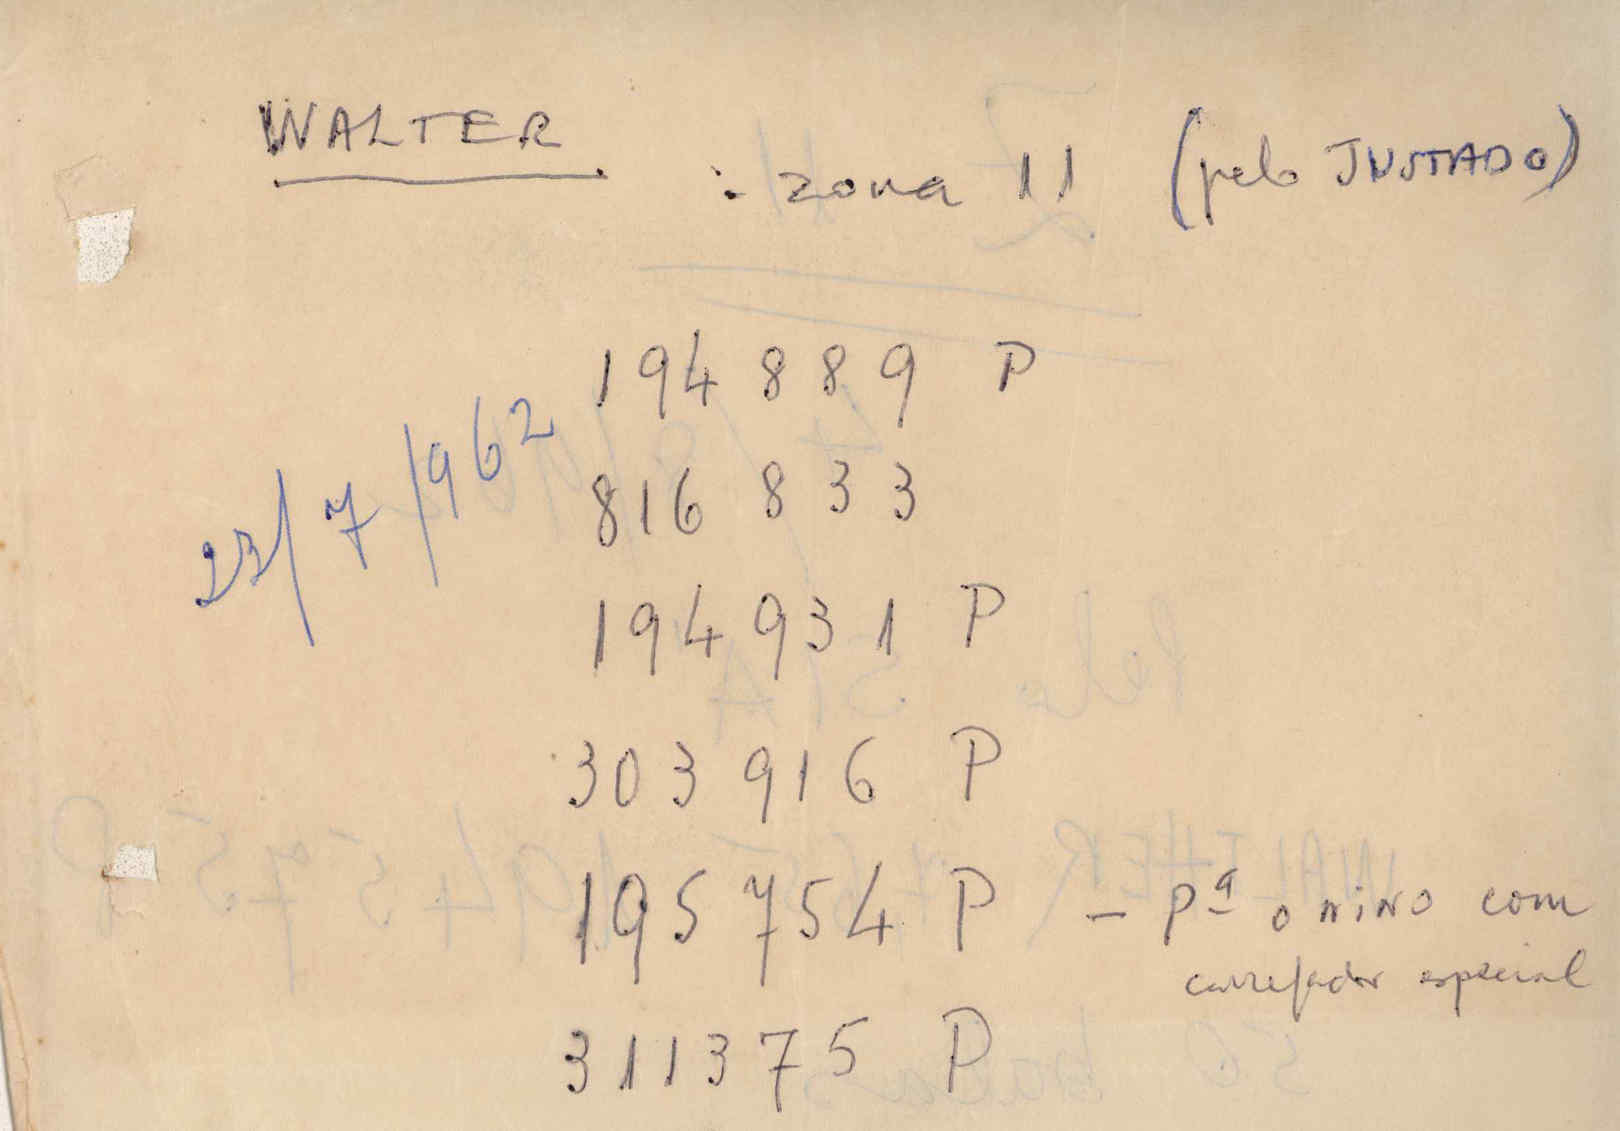 WALTER : zona 11 (pelo JUSTADO)
194 889 P
23/7/962
816 833
194 931 P
303 916 P
195 754 P - pª o NINO com
carregador especial
311375 P